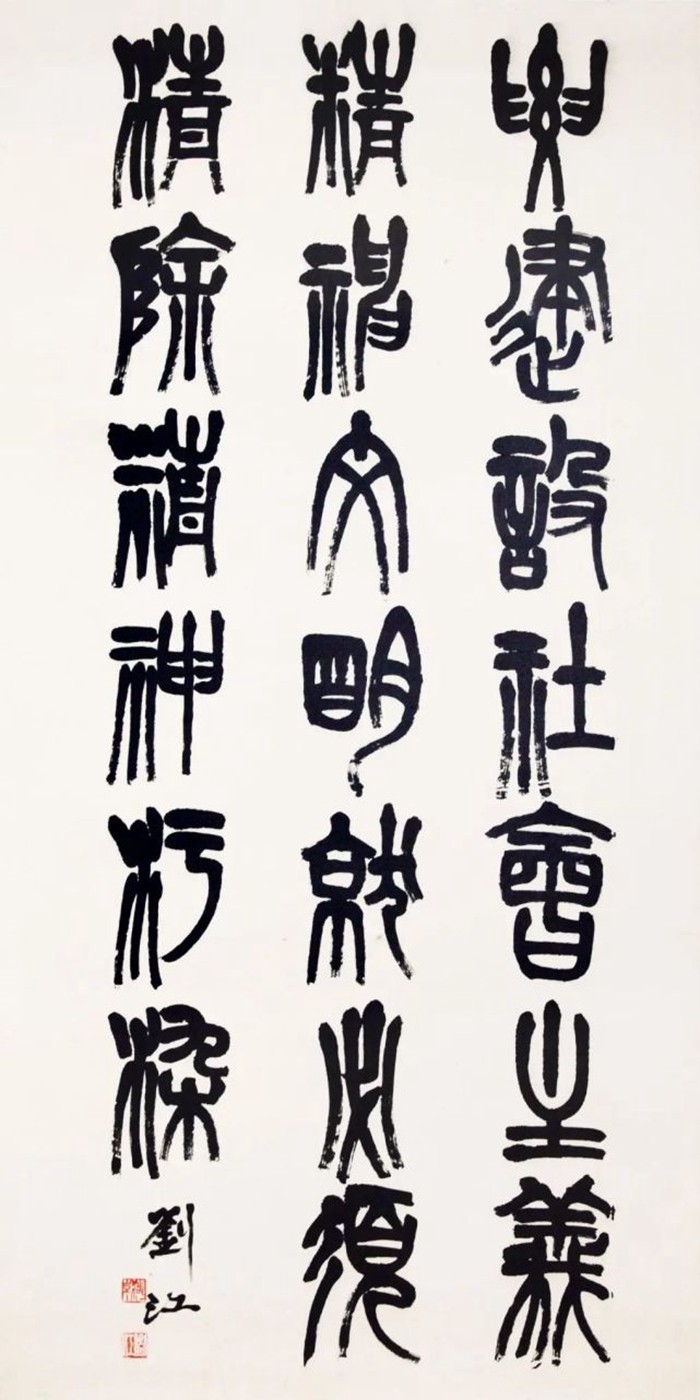 要建設社會主義
精神文明就必須
清除精神污染
劉江